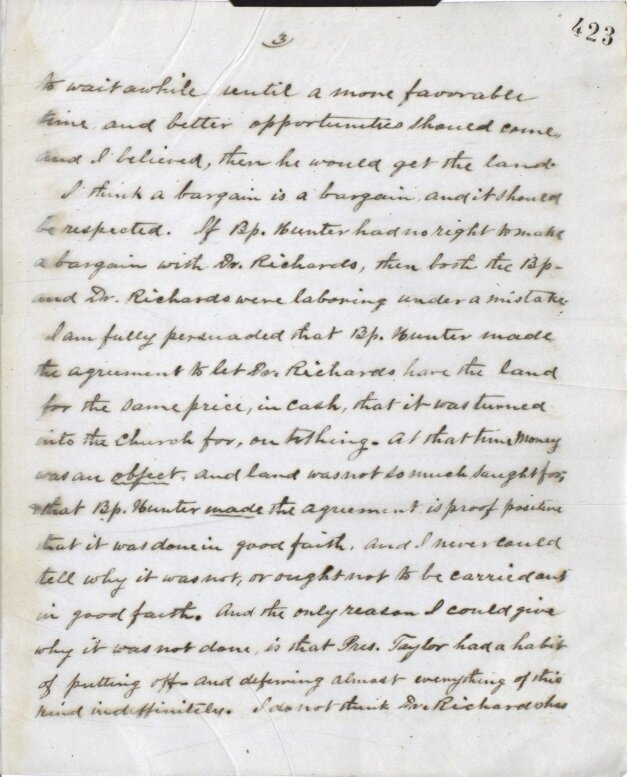 3
423
to wait awhile until a more favorable
time, and better opportunities should come,
and I believed, then he would get the land.
I think a bargain is a bargain, and it should
be respected. If Bp. Hunter had no right to make
a bargain with Dr. Richards, then both the Bp.
and Dr. Richards were laboring under a mistake.
I am fully persuaded that Bp. Hunter made
the agreement to let Dr. Richards have the land
for the same price, in cash, that it was turned
into the Church for, on tithing. At that time Money
was an object, and land was not so much saught for,
that Bp. Hunter made the agreement, is proof positive
that it was done in good faith, and I never could
tell why it was not, or ought not to be carried out
in good faith. And the only reason I could give
why it was not done, is that Pres. Taylor had a habit
of putting off and defering almost everything of this
kind indeffinitely. I do not think Dr. Richards has